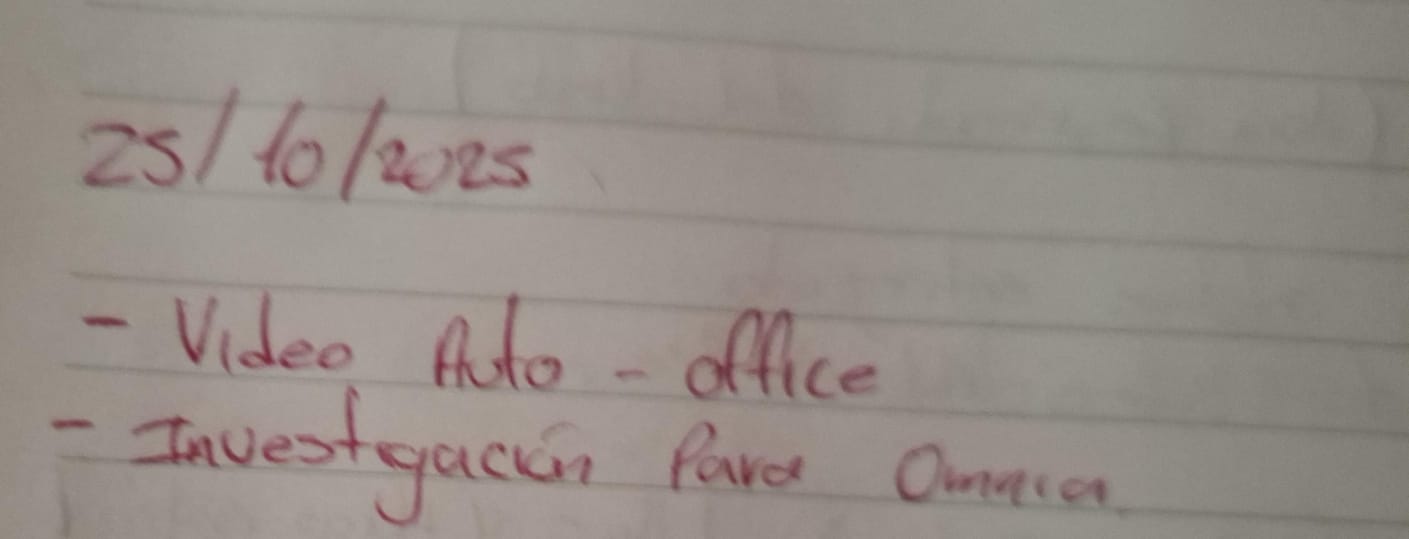 25/10/2025
- Video Auto - office
- Investigación Para Omnia